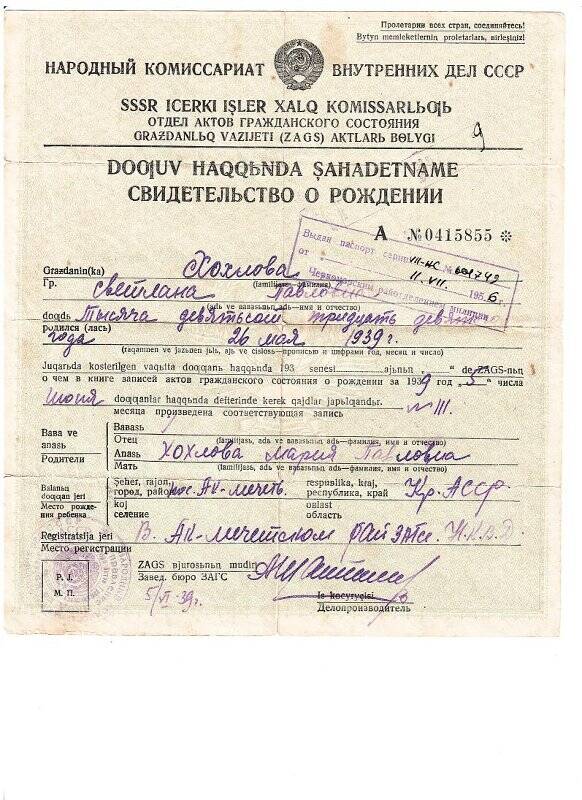 Пролетарии всех стран, соединяйтесь!
Bytyn memleketlerniꞑ proletarlarь, birleşiniz!
НАРОДНЫЙ КОМИССАРИАТ ВНУТРЕННИХ ДЕЛ СССР
SSSR ICERKI IŞLER XALQ KOMISSARLЬƢЬ
ОТДЕЛ АКТОВ ГРАЖДАНСКОГО СОСТОЯНИЯ
GRAƵDANLЬQ VAZIJETI (ZAGS) AKTLARЬ BɵLYGI
9
DOƢUV HAQQЬNDA ŞAHADETNAME
СВИДЕТЕЛЬСТВО О РОЖДЕНИИ
А №0415855
Выдан паспорт серии VII-НС №
от 11.VII. 1956.
милиции
Graƶdanin(ka) Хохлова
Гр. (familijasь, фамилия)
Светлана Павловна
(adь ve babasьnьꞑ adь—имя и отчество)
doƣdь Тысяча девятьсот тридцать девято
родился (лась)
года 26 мая 1939 г.
(raqamnen ve jazьnen jьlь, ajь ve cislosь—прописью и цифрами год, месяц и число)
Juqarьda kosterilgen vaqьtta doƣƣanь haqqьnda 193 senesi ajьnьꞑ " de ZAGS-nьꞑ
о чем в книге записей актов гражданского состояния о рождении за 1939 год „5" числа
июня doƣƣanlar haqqьnda defterinde kerek qajdlar japьlƣandьr.
месяца произведена соответствующая запись № 111.
Baba ve anasь
Родители
Babasь
Отец (familijasь, adь ve babasьnьꞑ adь—фамилия, имя и отчество)
Anasь Хохлова Мария Павловна
Мать (familijasь, adь ve babasьnьꞑ adь—фамилия, имя и отчество)
Balanьꞑ doƣƣan jeri
Место рождения ребенка
Şeher, rajon, respublika, kraj,
город, район пос. Ак-мечеть республика, край Кр. АССР
koj onlast
селение область
Registratsija jeri В. Ак-мечетском райзагсе Н.К.В.Д.
Место регистрации
ZAGS bjurosьnьꞑ mudiri
Завед. бюро ЗАГС
P. J.
М. П.
5/VI 39 г.
Iş kocyryçisi
Делопроизводитель